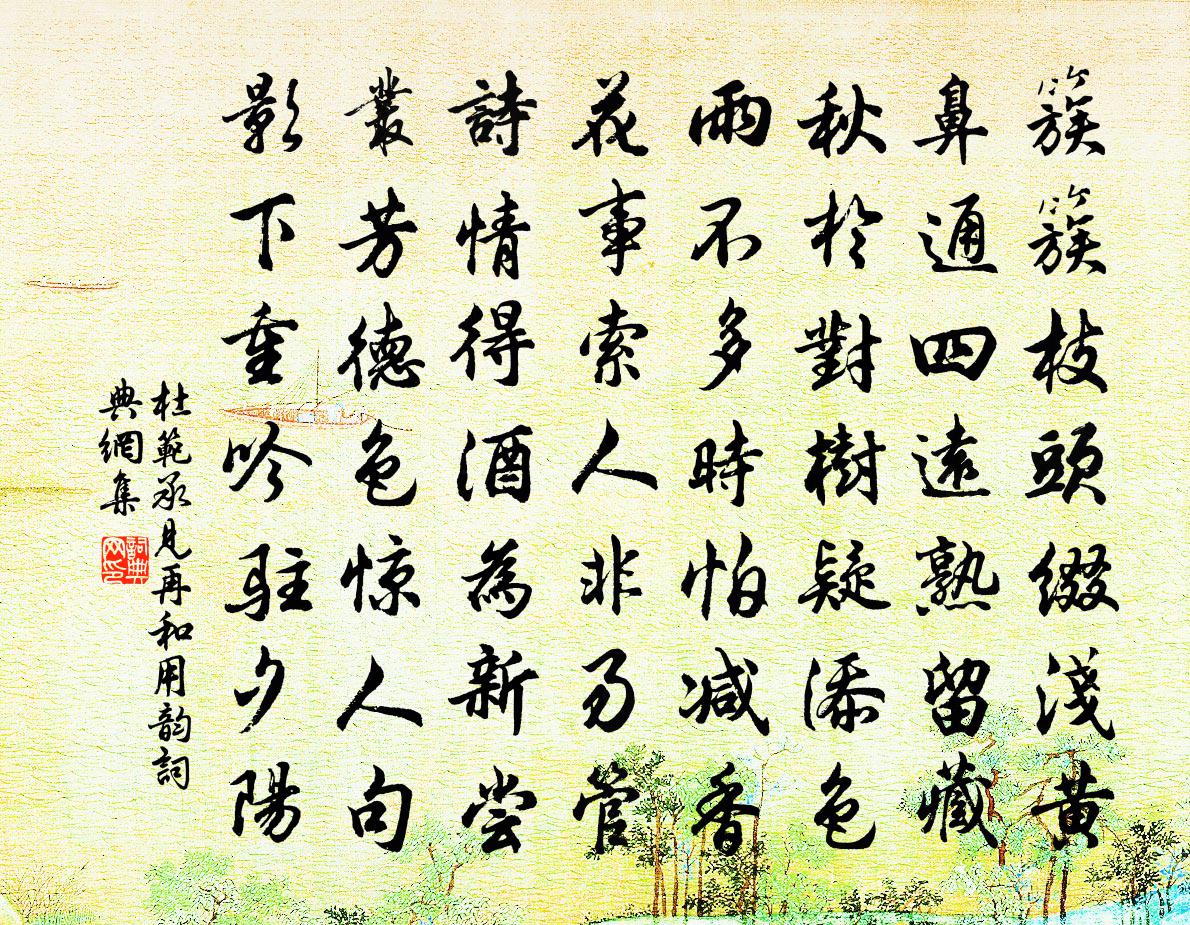 簇簇枝頭綴淺黃
鼻通四遠熟留藏
秋於對樹疑添色
雨不多時怕減香
花事索人非易管
詩情得酒為新嘗
叢芳德色惊人句
影下重吟駐夕陽
杜範承見再和用韵詞
典網集
詞典
网印